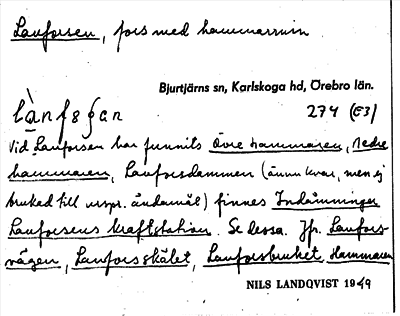 Lanforsen, fors med hammarruin
Bjurtjärns sn, Karlskoga hd, Örebro län.
274 (E3)
Vid Lanforsen har funnits övre hammaren, nedre
hammaren, Lanforsdammen (ännu kvar, men ej
brukad till urspr. ändamål) finnes Indämningen
Lanforsens kraftstation. Se dessa. Jfr. Lanfors-
vägen, Lanforsskälet, Lanforsbruket, Hammaren
NILS LANDQVIST 1949